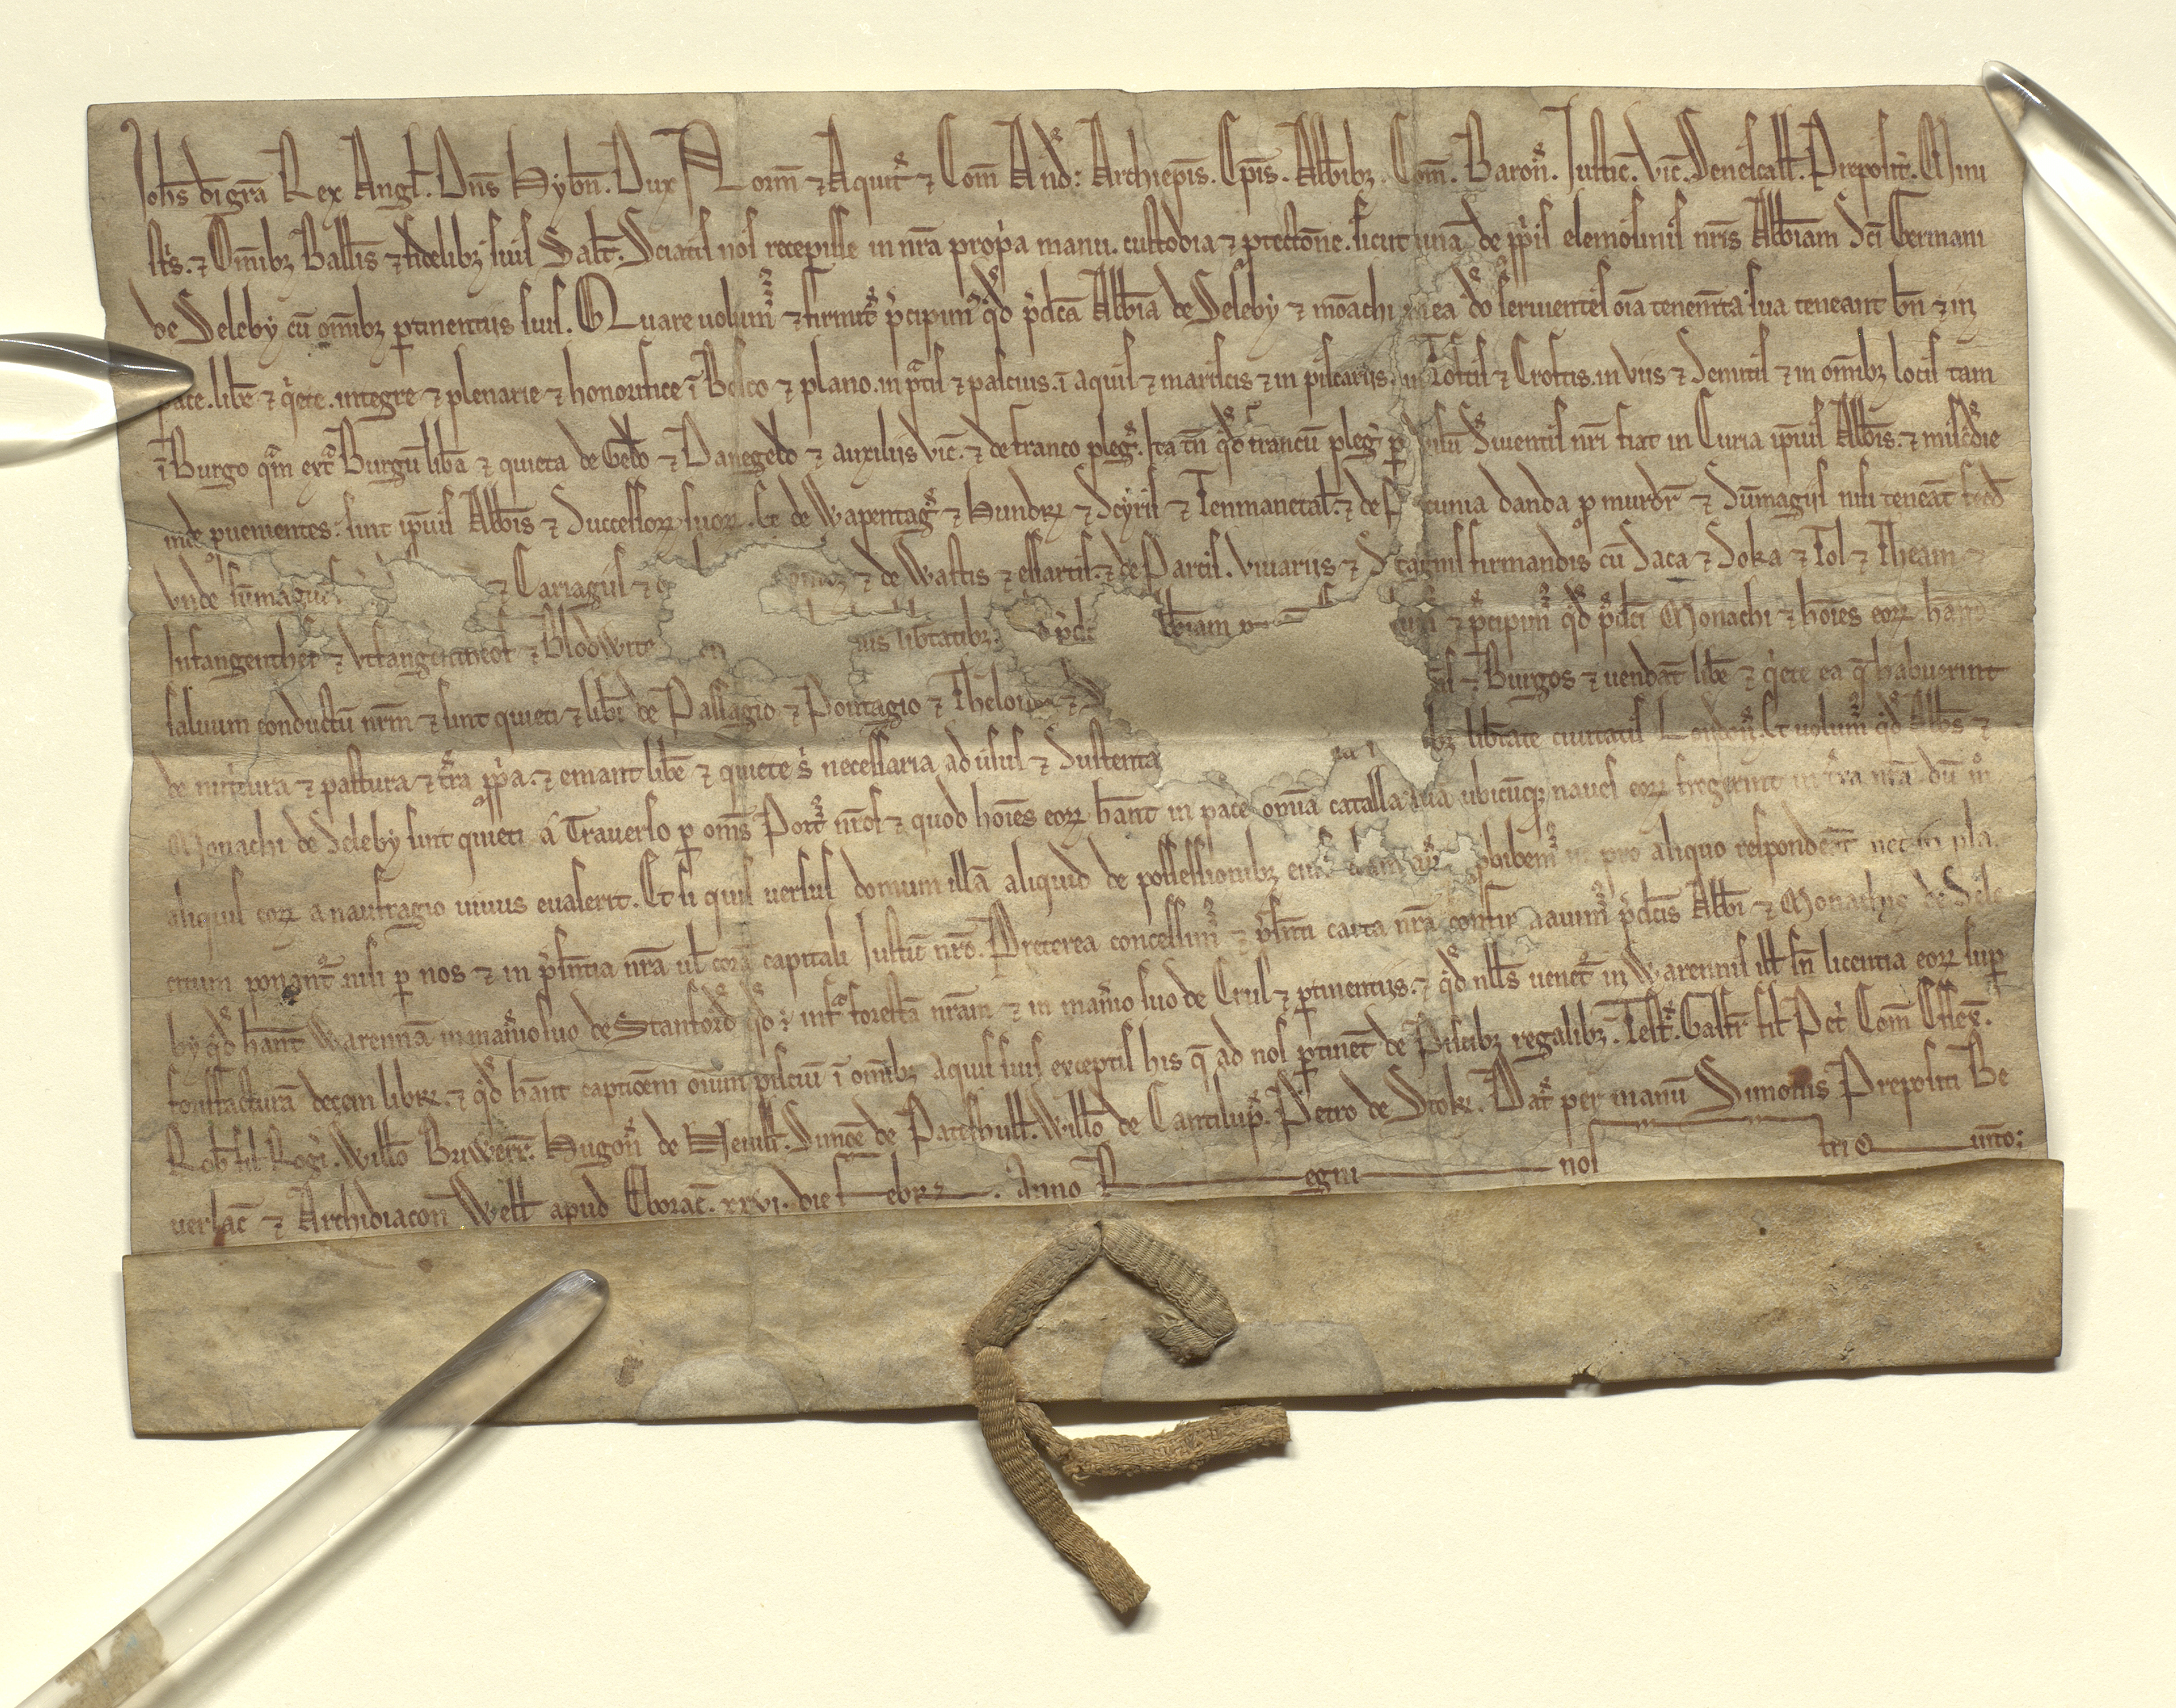 Joh̄s di gr̄a Rex Angl̄. Dn̄s Hyb̄n. Dux Norm̄ ⁊ Aquit̄ ⁊ Com̄ And̄: Archiep̄is. Ep̄is. Abb̄ibꝫ. Com̄. Baron̄. Justic̄. Vic̄. Senescall̄. Preposit̄. Mini
st̄s. ⁊ Om̄ibꝫ Ball̄is ⁊ fidelibꝫ suis Sal̄t. Sciatis nos recepisse in nr̄a prop̄a manu. custodia ⁊ ꝓtectōne. sicut unā de pp̄is elemosinis nr̄is Abb̄iam sc̄i Germani
de Seleby cū om̄ibꝫ ꝑtinentiis suis. Quare uolum᷒ ⁊ firmit̄ p̄cipim᷒ qd̄ p̄dc̄a Abb̄ia de Seleby ⁊ mōachi in ea do seruientes oīa tenem̄ta sua teneant bn̄ ⁊ in
pace. lib̄e ⁊ q̄ete. integre ⁊ plenarie ⁊ honorifice ī Bosco ⁊ plano. in p̄tis ⁊ pascuis. ī aquis ⁊ mariscis ⁊ in piscariis. in Toftis ⁊ Croftis. in viis ⁊ Semitis ⁊ in om̄ibꝫ locis tam
ī Burgo qm̄ ext̄ Burgū lib̄a ⁊ quieta de Geldo ⁊ Danegeldo ⁊ auxiliis vic̄. ⁊ de franco pleḡ. Ita tn̄ qd̄ francū pleḡ ꝑ uisū Seruientis nr̄i fiat in Curia ip̄ius Abb̄is. ⁊ mis̄cdie
inde ꝓuenientes: sint ip̄ius Abb̄is ⁊ Successorꝝ suorꝝ. Et de Wapentaḡ ⁊ Hundrꝝ ⁊ Scyris ⁊ Tenmanetal̄. ⁊ de cunia danda ꝓ murdr̄ ⁊ Sūmagiis nisi teneāt feod̄
vnde sūmagiū ⁊ Cariagiis ⁊ ⁊ de Wastis ⁊ essartis. ⁊ de Parcis. Viuariis ⁊ Stagnis firmandis cū Saca ⁊ Soka ⁊ Tol ⁊ Theam ⁊
Infangenthef ⁊ Vtfangenntheof ⁊ Blodwite iis lib̄tatibꝫ. p̄dc̄ bbiam ⁊ p̄cipim᷒ qd̄ p̄dc̄i Monachi ⁊ hoīes eorꝝ hān
saluum conductū nr̄m ⁊ sint quieti ⁊ lib̄i de Passagio ⁊ Pontagio ⁊ Theloneo ⁊ ⁊ Burgos ⁊ uendāt lib̄e ⁊ q̄ete ea q̄ habuerint
de nut̄tura ⁊ pastura ⁊ t̄ra pp̄a. ⁊ emant lib̄e ⁊ quiete s̄ necessaria ad usus ⁊ Sustenta lib̄tate ciuitatis London̄. Et uolum᷒ qd̄ Abb̄s ⁊
Monachi de Seleby sint quieti a Trauerso ꝑ om̄s Port᷒ nr̄os ⁊ quod hoīes eorꝝ hān̄t in pace omnia catalla sua ubicūqꝫ naues eorꝝ fregerint in t̄ra nr̄a dū m̄
aliquis eorꝝ a naufragio uiuus euaserit. Et si quis uersus domum illā aliquid de possessionibꝫ ꝓhibem᷒ ne pro aliquo respondeāt nec in pla
citum ponant᷑ nisi ꝑ nos ⁊ in p̄sn̄tia nr̄a ul̄ corā capitali Justic̄ nr̄o. Preterea concessim᷒ ⁊ p̄sn̄ti carta nr̄a confirmauim᷒ p̄dc̄is Abb̄i ⁊ Monachis de Sele
by qd̄ hān̄t Warennā in man̄io suo de Stanford̄ qd̄ ē inf̄ forestā nr̄am ⁊ in man̄io suo de Crul ⁊ ꝑtinentiis. ⁊ qd̄ nll̄s uenet᷑ in Warennis ill̄ sn̄ licentia eorꝝ suꝑ
forisfacturā decem librꝝ. ⁊ qd̄ hān̄t captiōem oīum pisciū ī om̄ibꝫ aquis suis exceptis his q̄ ad nos ꝑtinēt de Piscibꝫ regalibꝫ. Test̄. Galfr̄ fil̄ Pet̄ Com̄ Essex̄.
Rob̄ fil̄ Roḡi. Will̄o Briwerr̄. Hugon̄ de Neuill̄. Simōe de Pateshull̄. Will̄o de Cantilup̄. Petro de Stokꝝ. Dat̄ per manū Simonis Prepositi Be
uerlac̄ ⁊ Archidiacon̄ Well̄ apud Eborac̄. xxvi. die Febrꝝ. Anno Regni nostri Quinto: